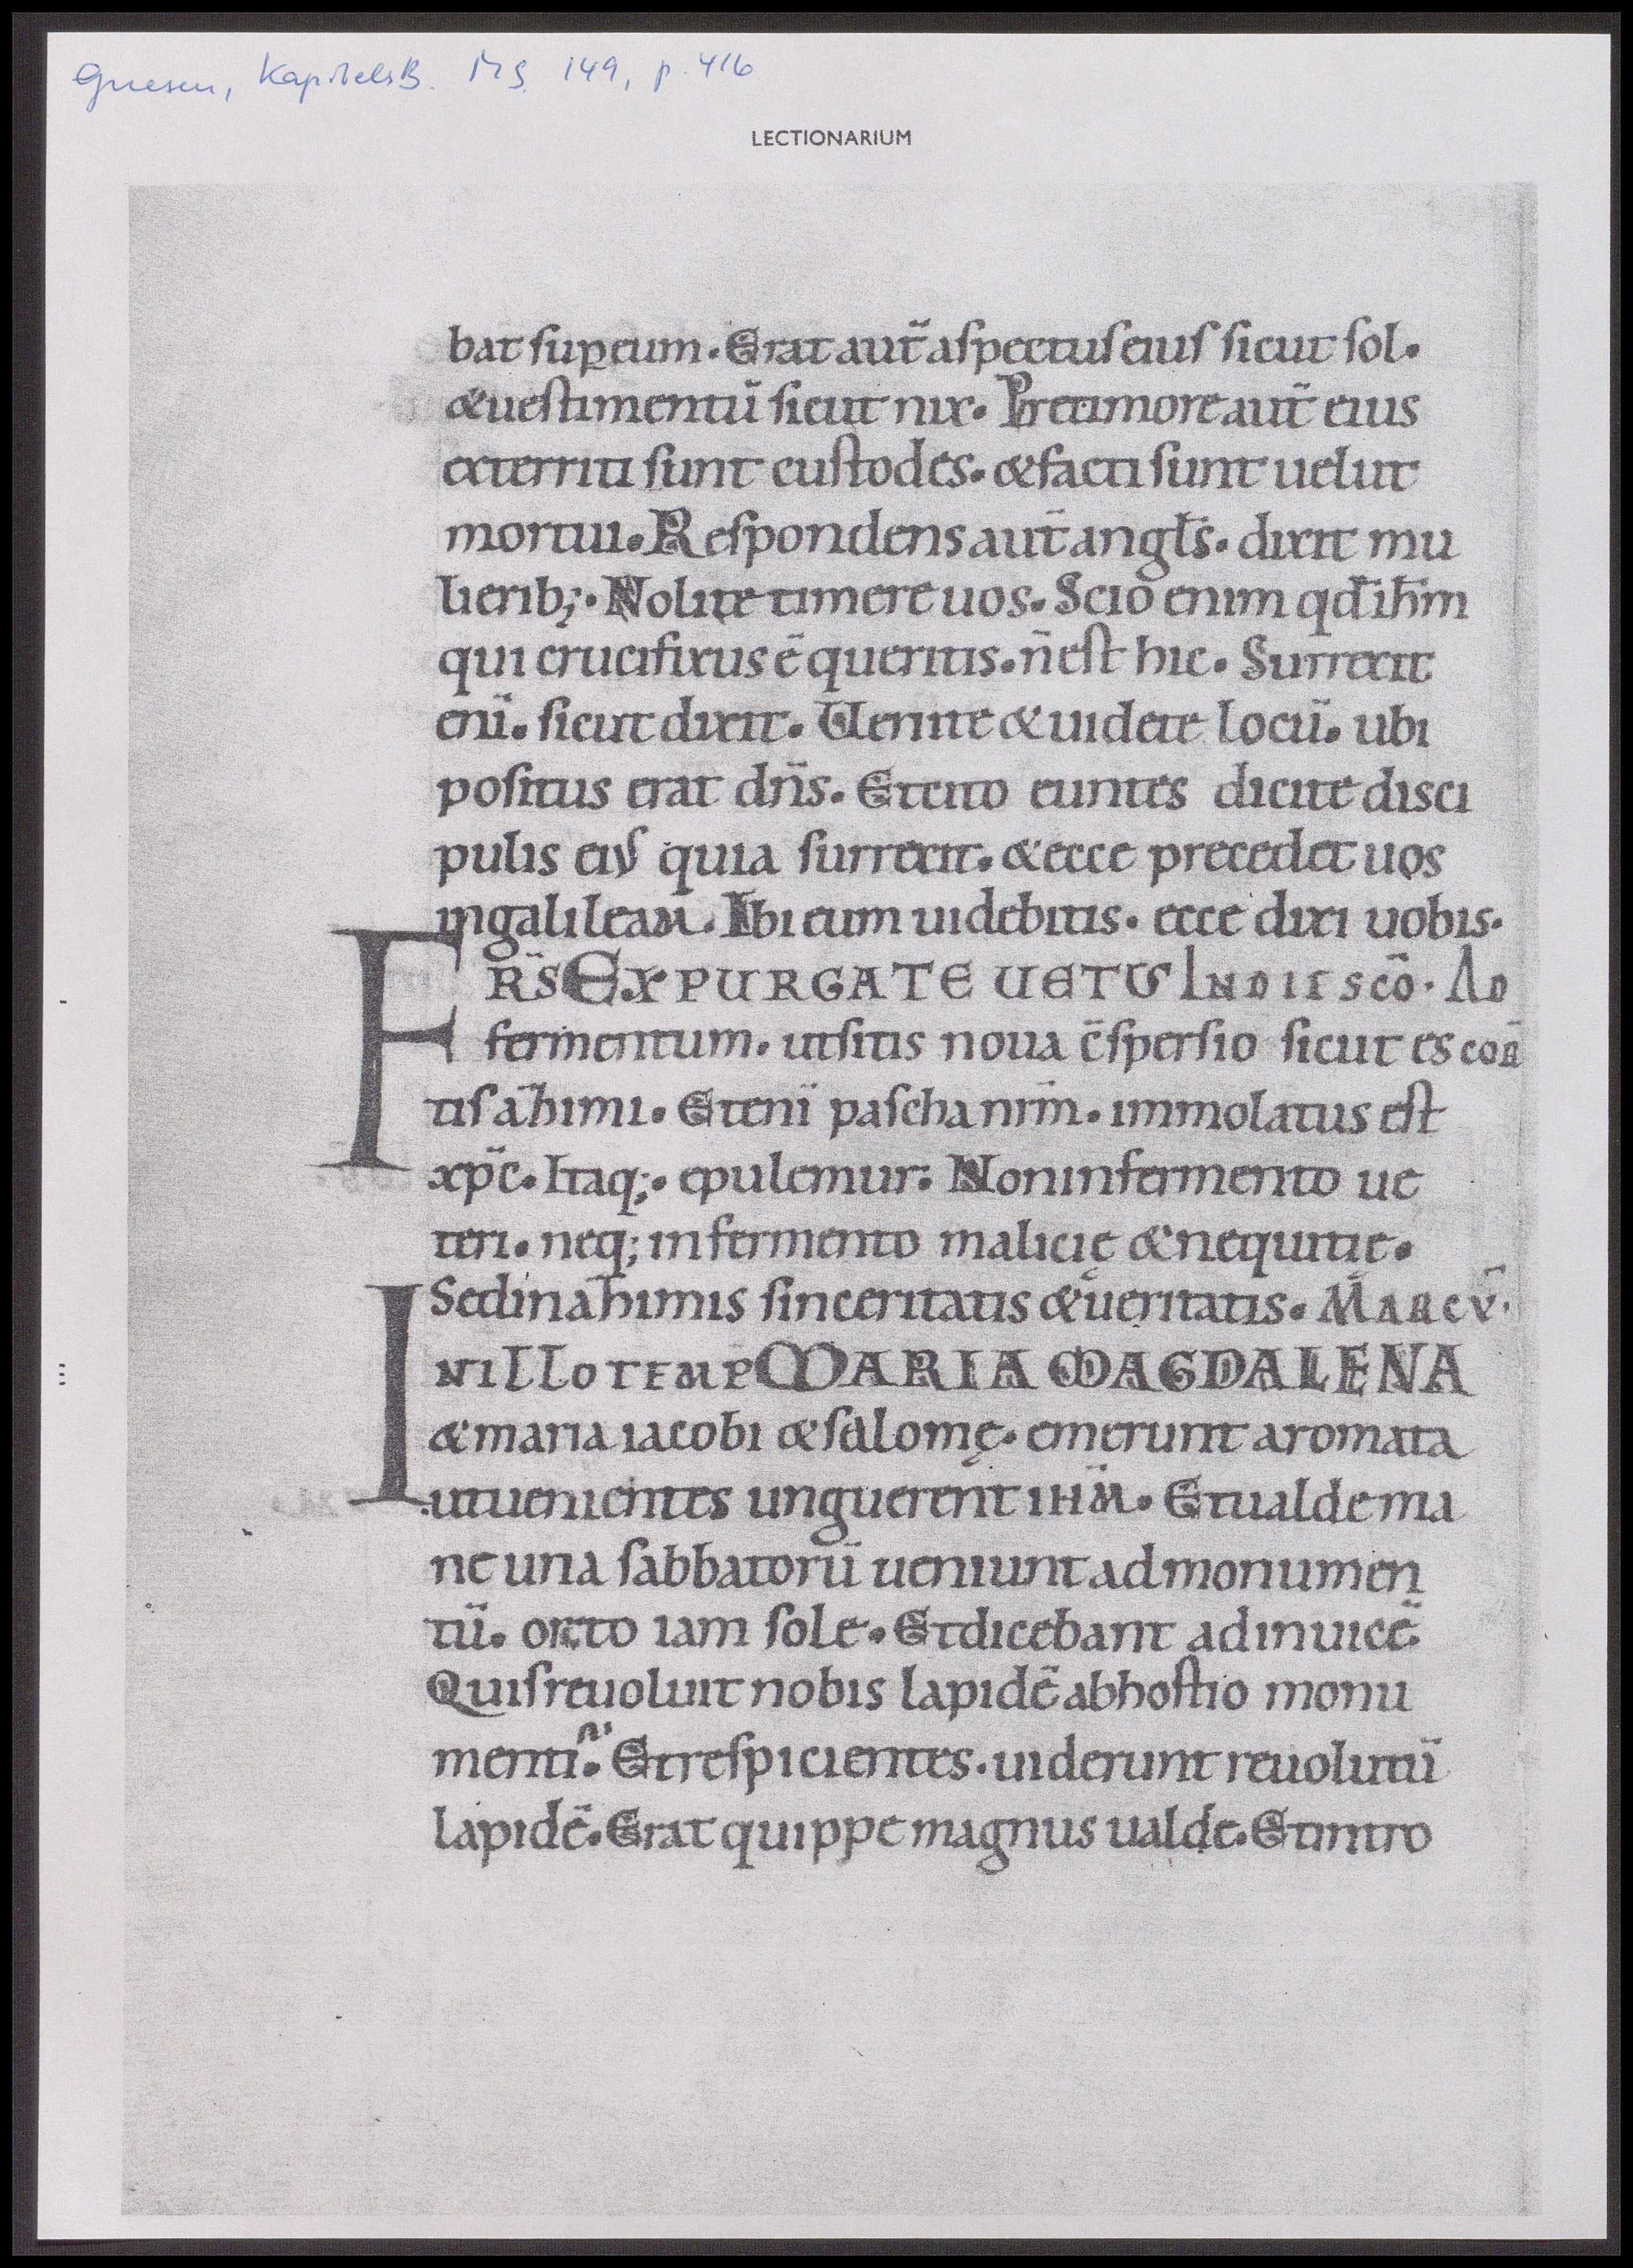 Gnesen, KapitelsB. Ms. 149, p. 416
LECTIONARIUM
bat sup eum. Erat aut̄ aspectus eius sicut sol.
& uestimentū sicut nix. Pre timore aut̄ eius
exterriti sunt custodes. & facti sunt uelut
mortui. Respondens aut̄ angl̄s. dixit mu
lierib;. Nolite timere uos. Scio enim qd̄ ih̄m
qui crucifixus ē queritis. n̄ est hic. Surrexit
enī. sicut dixit. Uenite & uidete locū. ubi
positus erat dn̄s. Et cito euntes dicite disci
pulis eius quia surrexit. & ecce precedet uos
in galileam. Ibi eum uidebitis. ecce dixi uobis.
FRS̄ EXPURGATE UETUS IN DIE SCŌ. AD
fermentum. ut sitis noua c̄spersio sicut es COR̄
tis ahimi. Etenī pascha nr̄m. immolatus est
xp̄c. Itaq;. epulemur. Non in fermento ue
teri. neq; in fermento malicię & nequitię.
Sed in ahimis sinceritatis & ueritatis. MARCV̄.
IN ILLO TEMP̄ MARIA MAGDALENA
& maria iacobi & salomę. emerunt aromata
ut uenientes unguerent ih̄m. Et ualde ma
ne una sabbatorū ueniunt ad monumen
tū. orto iam sole. Et dicebant ad inuicē.
Quis reuoluit nobis lapidē ab hostio monu
menti. Et respicientes. uiderunt reuolutū
lapidē. Erat quippe magnus ualde. Et intro